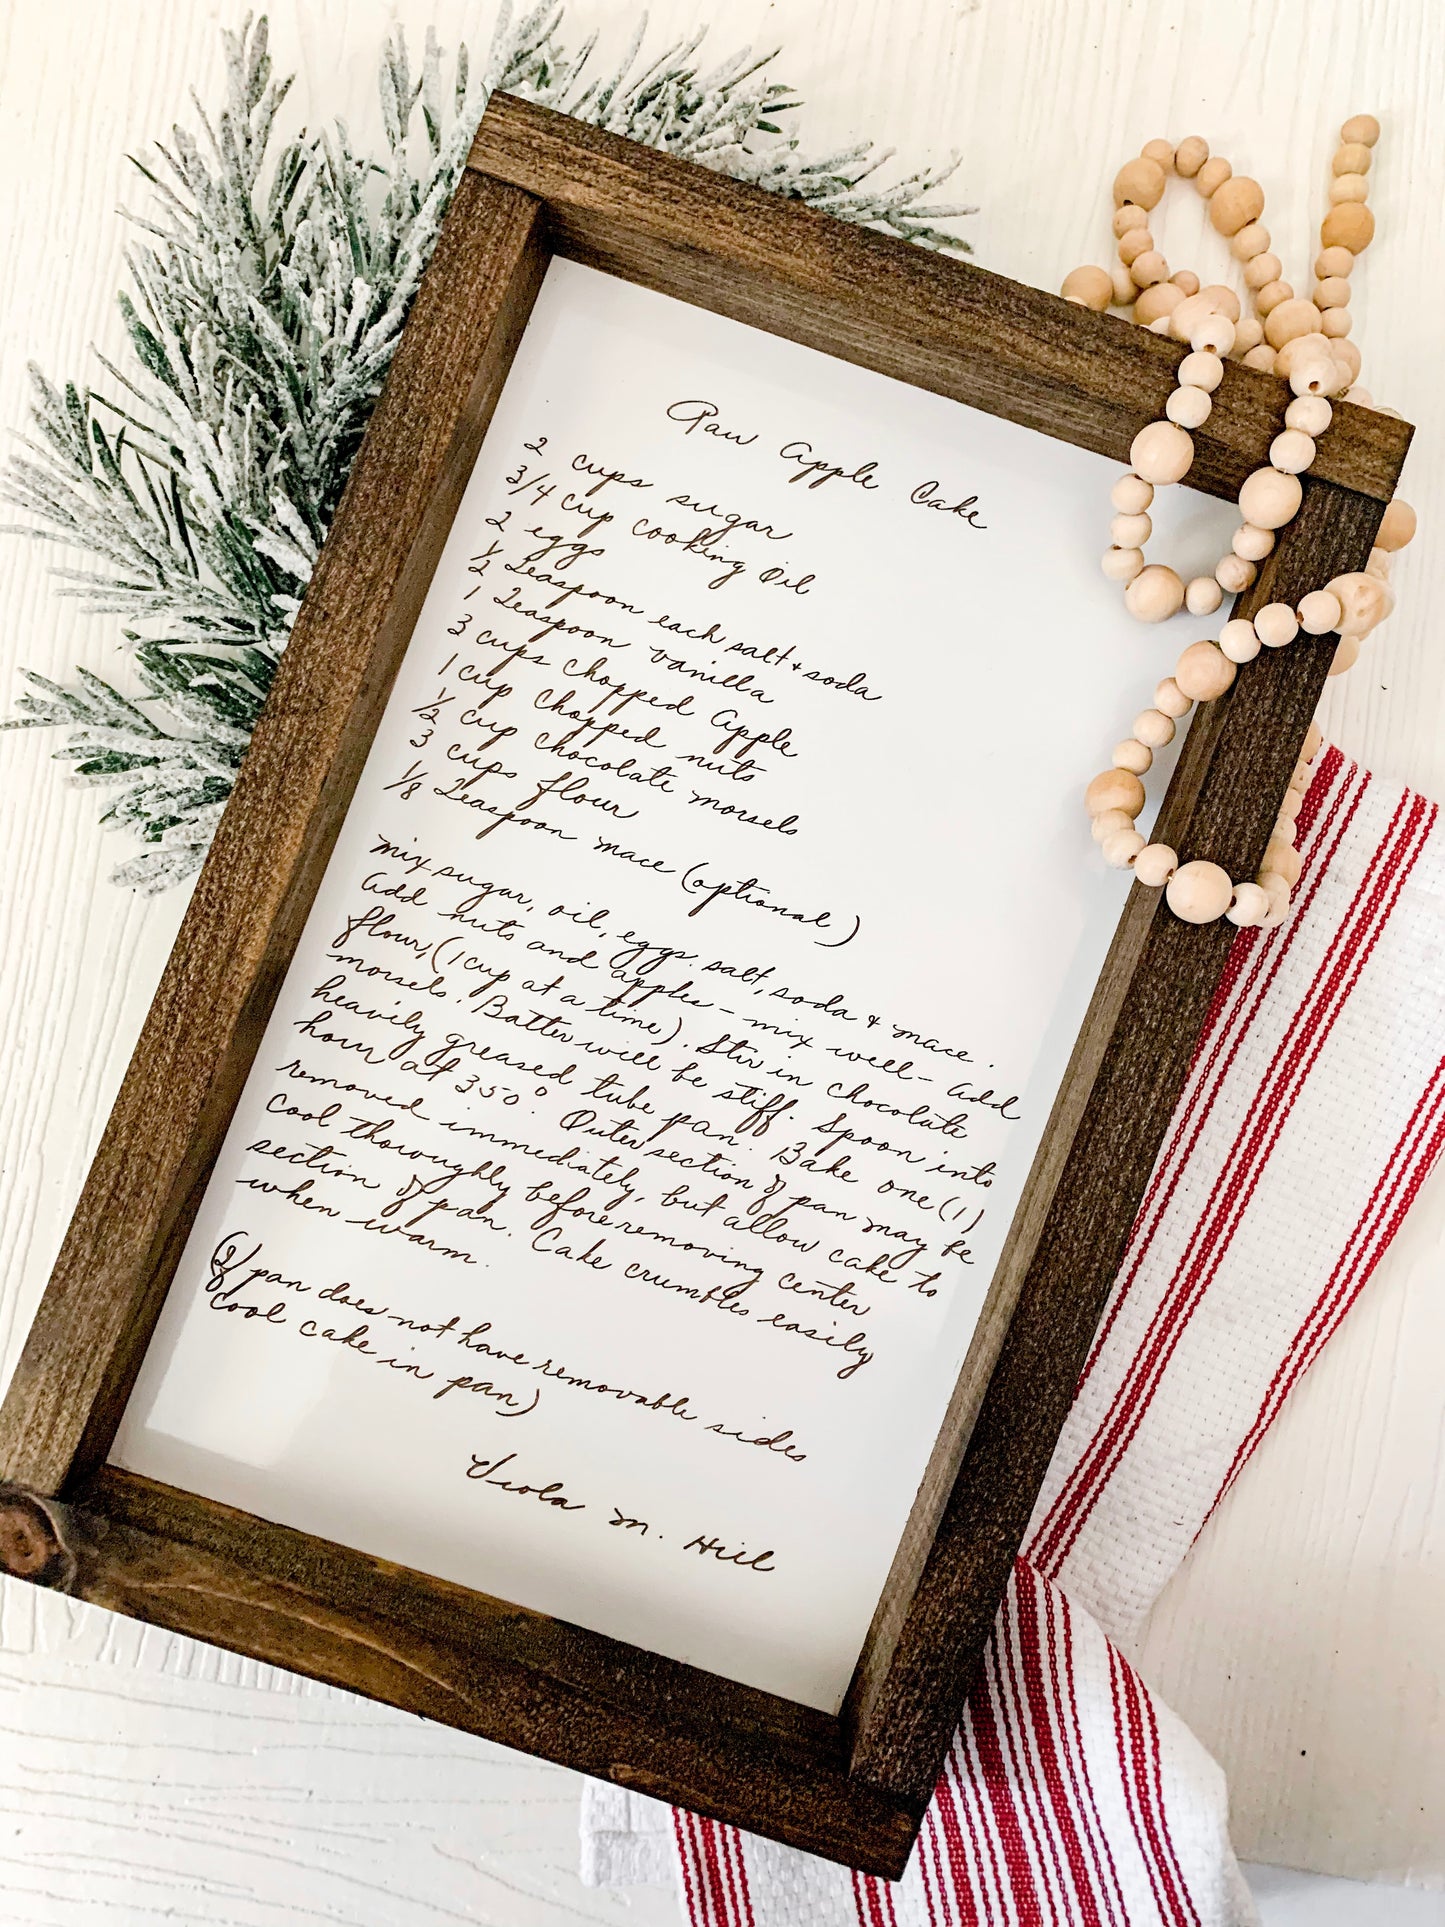 Raw Apple Cake
2 cups sugar
3/4 cup cooking Oil
2 eggs
1/2 Teaspoon each salt & soda
1 Teaspoon vanilla
3 cups chopped Apple
1 cup chopped nuts
1/2 cup chocolate morsels
3 cups flour
1/8 Teaspoon mace (optional)
Mix sugar, oil, eggs. salt, soda & mace.
Add nuts and apples - mix well - Add
flour, (1 cup at a time). Stir in chocolate
morsels. Batter will be stiff. Spoon into
heavily greased tube pan. Bake one (1)
hour at 350°. Outer section of pan may be
removed immediately, but allow cake to
cool thoroughly before removing center
section of pan. Cake crumbles easily
when warm.
(If pan does not have removable sides
cool cake in pan)
Viola M. Hill